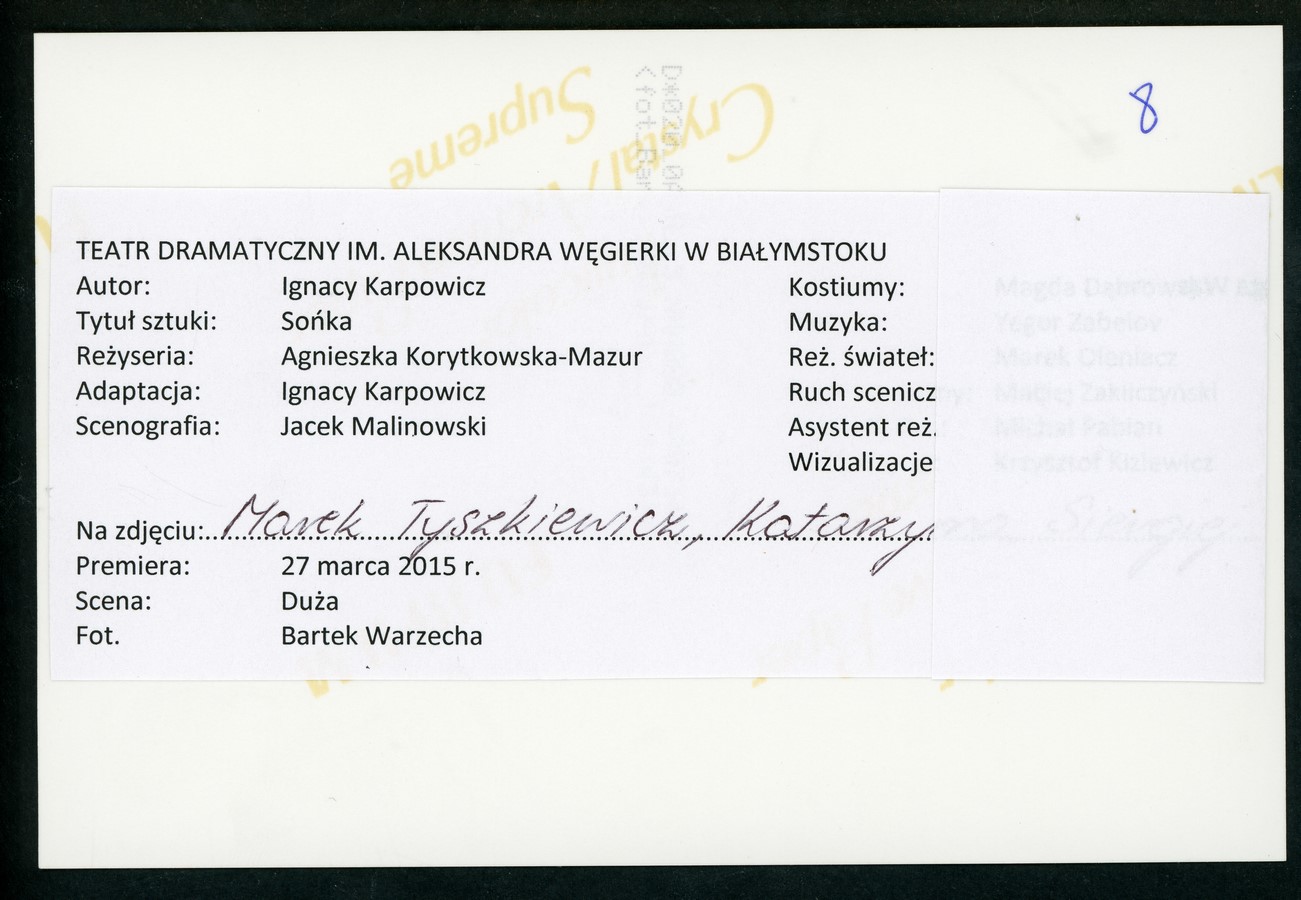 8
Crystal
Supreme
TEATR DRAMATYCZNY IM. ALEKSANDRA WĘGIERKI W BIAŁYMSTOKU
Autor: Ignacy Karpowicz Kostiumy: Magda Dąbrowska
Tytuł sztuki: Sońka Muzyka: Yegor Zabelov
Reżyseria: Agnieszka Korytkowska-Mazur Reż. świateł: Marek Oleniacz
Adaptacja: Ignacy Karpowicz Ruch sceniczny: Maciej Zakliczyński
Scenografia: Jacek Malinowski Asystent reż. Michał Pabian
Wizualizacje Krzysztof Kiziewicz
Na zdjęciu: Marek Tyszkiewicz, Katarzyna
Premiera: 27 marca 2015 r.
Scena: Duża
Fot. Bartek Warzecha